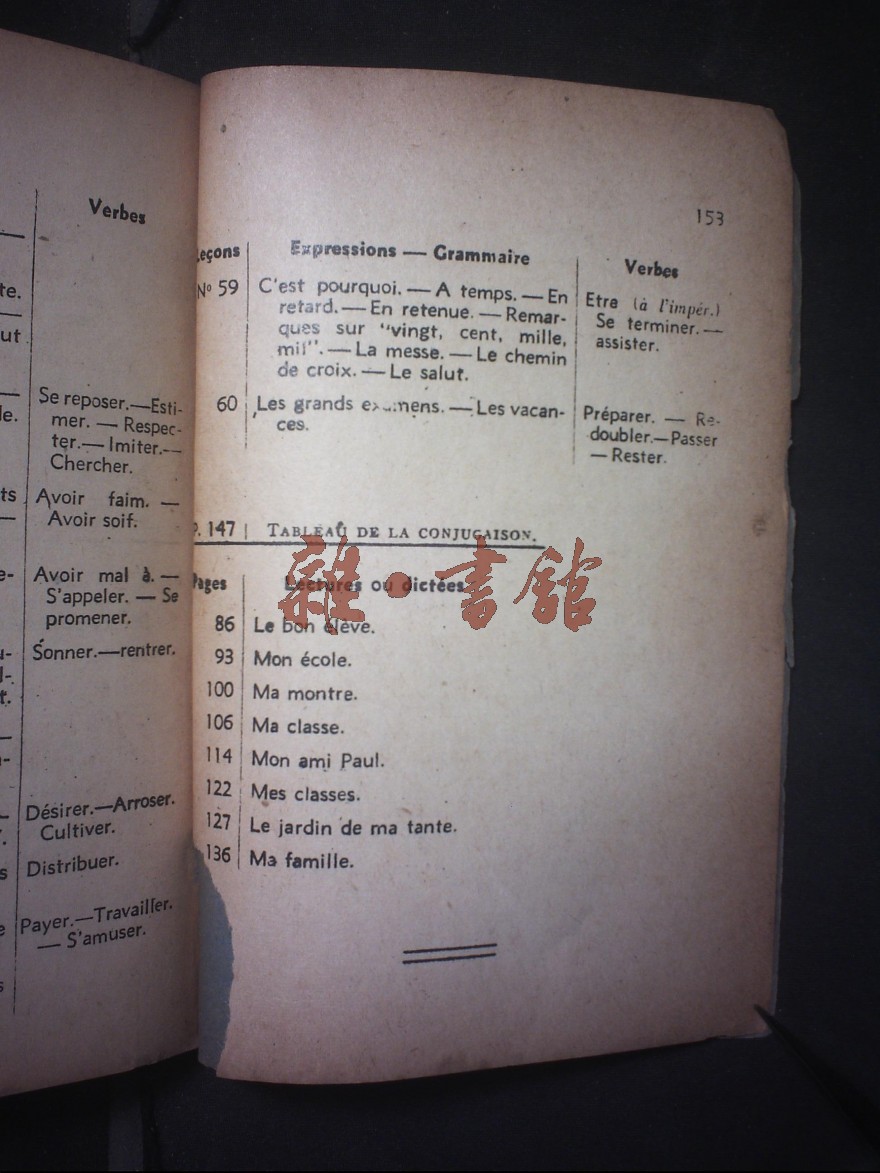 Verbes
te.
ut
Se reposer.—Esti-
mer. — Respec-
ter.— Imiter.—
Chercher.
le.
ts
Avoir faim. —
Avoir soif.
e-
Avoir mal à. —
S'appeler. — Se
promener.
Sonner.—rentrer.
t.
Désirer.—Arroser.
Cultiver.
s
Distribuer.
e
Payer.—Travailler.
— S'amuser.
s
153
Leçons Expressions — Grammaire Verbes
No 59 C'est pourquoi. — A temps. — En
retard. — En retenue. — Remar-
ques sur "vingt, cent, mille,
mil". — La messe. — Le chemin
de croix. — Le salut.
Etre (à l'impér.)
Se terminer. —
assister.
60 Les grands examens. — Les vacan-
ces.
Préparer. — Re-
doubler.—Passer
— Rester.
P. 147 TABLEAU DE LA CONJUGAISON.
Pages Lectures ou dictées
86 Le bon élève.
93 Mon école.
100 Ma montre.
106 Ma classe.
114 Mon ami Paul.
122 Mes classes.
127 Le jardin de ma tante.
136 Ma famille.
雜·書館